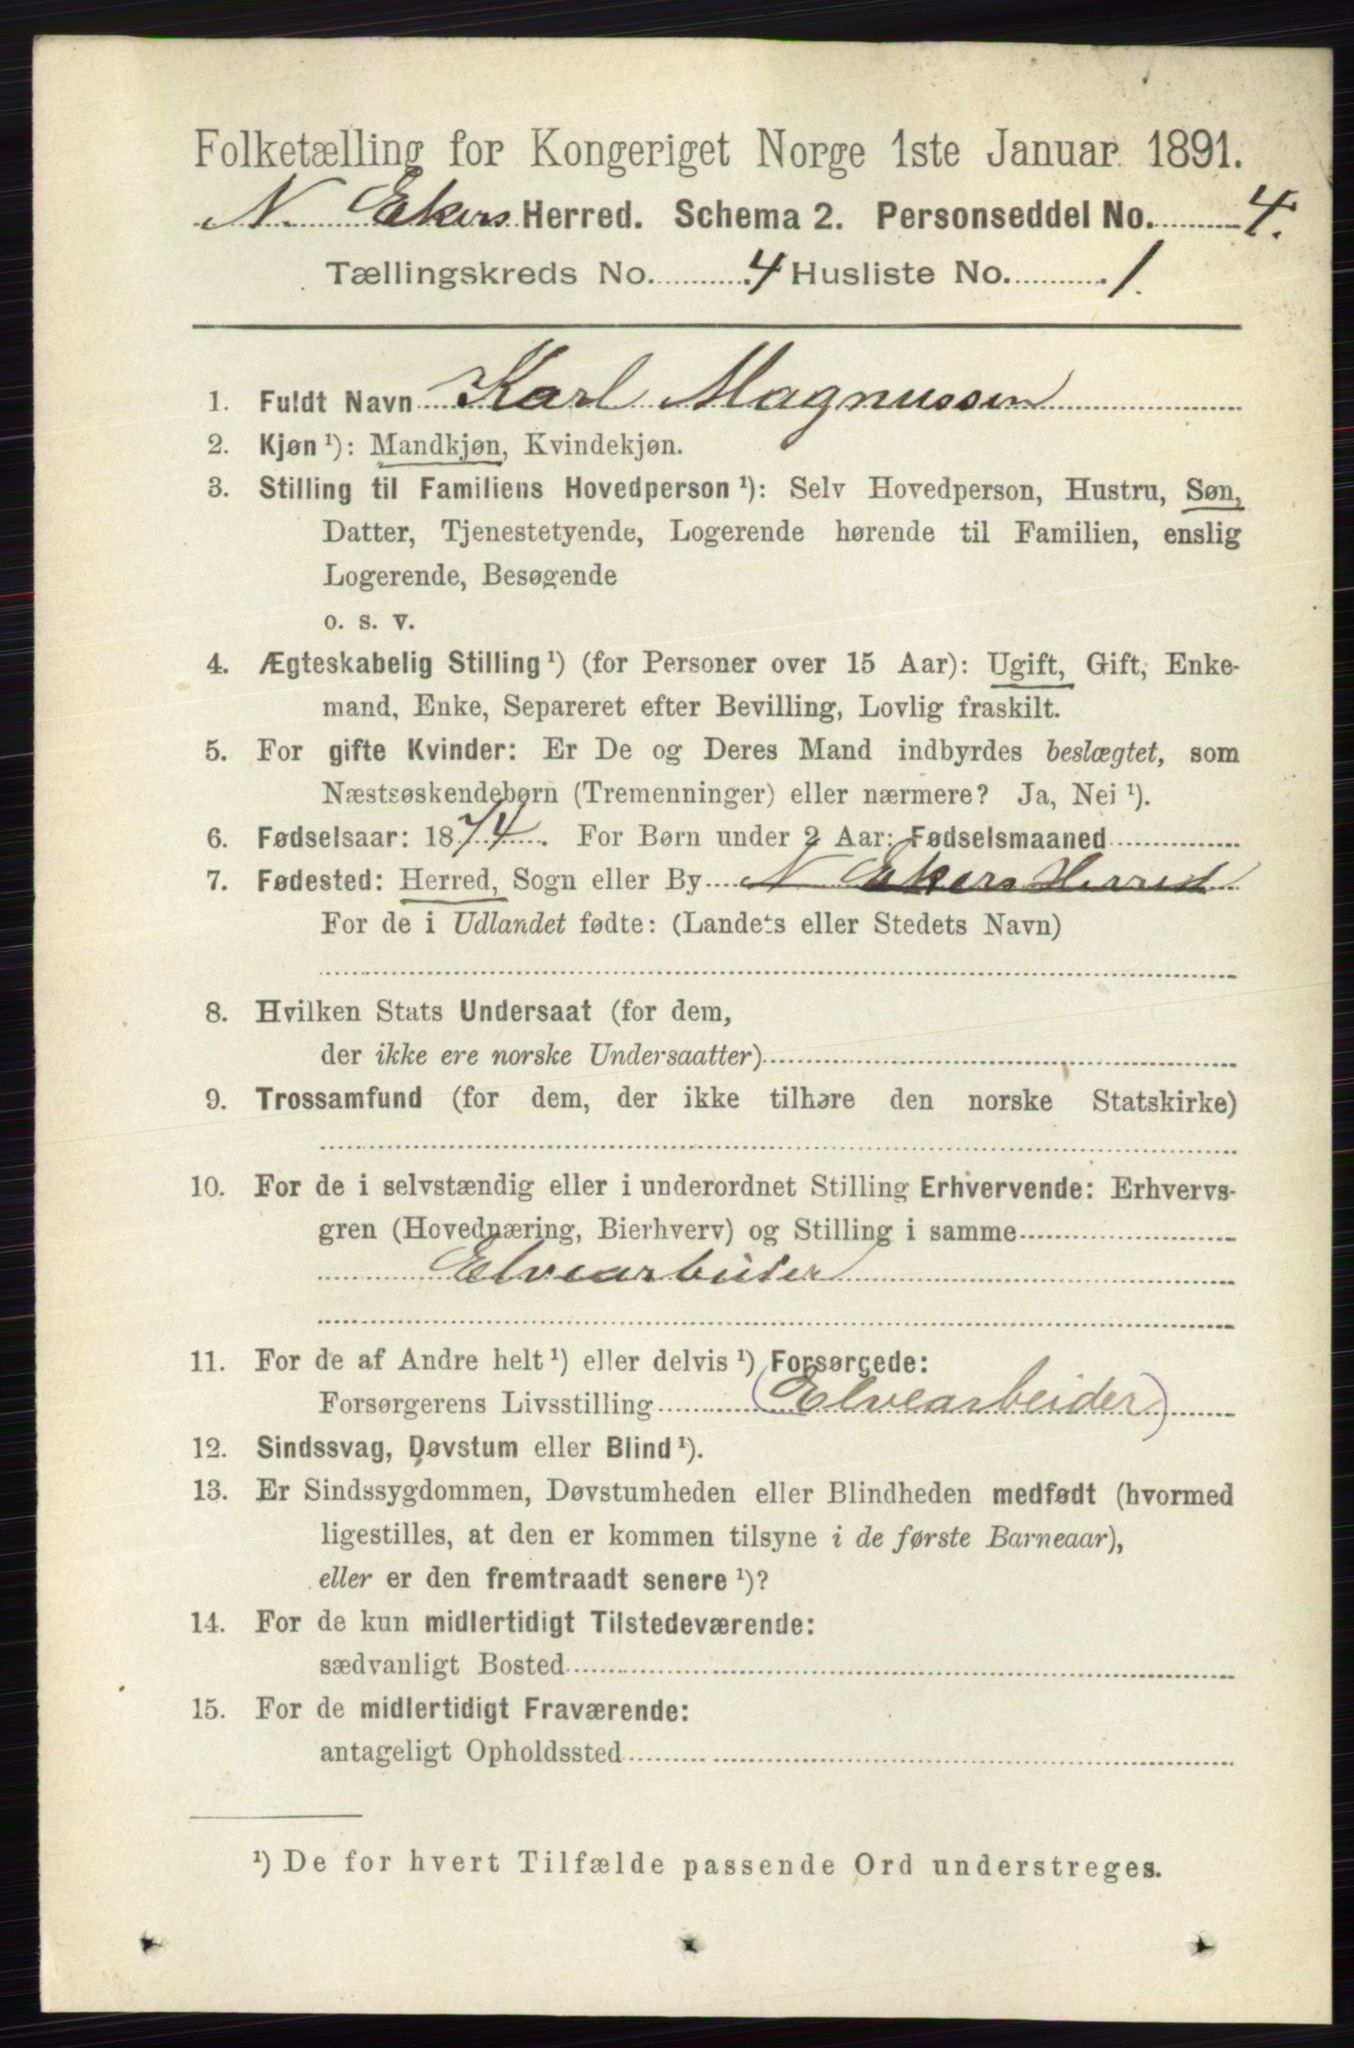 Folketælling for Kongeriget Norge 1ste Januar 1891.
N. Ekers Herred. Schema 2. Personseddel No. 4.
Tællingskreds No. 4 Husliste No. 1.
1. Fuldt Navn Karl Magnussen
2. Kjøn¹): Mandkjøn, Kvindekjøn.
3. Stilling til Familiens Hovedperson¹): Selv Hovedperson, Hustru, Søn,
Datter, Tjenestetyende, Logerende hørende til Familien, enslig
Logerende, Besøgende
o. s. v.
4. Ægteskabelig Stilling¹) (for Personer over 15 Aar): Ugift, Gift, Enke-
mand, Enke, Separeret efter Bevilling, Lovlig fraskilt.
5. For gifte Kvinder: Er De og Deres Mand indbyrdes beslægtet, som
Næstsøskendebørn (Tremenninger) eller nærmere? Ja, Nei¹).
6. Fødselsaar: 1874. For Børn under 2 Aar: Fødselsmaaned
7. Fødested: Herred, Sogn eller By N Ekers Herred
For de i Udlandet fødte: (Landets eller Stedets Navn)
8. Hvilken Stats Undersaat (for dem,
der ikke ere norske Undersaatter)
9. Trossamfund (for dem, der ikke tilhøre den norske Statskirke)
10. For de i selvstændig eller i underordnet Stilling Erhvervende: Erhvervs-
gren (Hovednæring, Bierhverv) og Stilling i samme
Elvearbeider
11. For de af Andre helt¹) eller delvis¹) Forsørgede:
Forsørgerens Livsstilling (Elvearbeider)
12. Sindssvag, Døvstum eller Blind¹).
13. Er Sindssygdommen, Døvstumheden eller Blindheden medfødt (hvormed
ligestilles, at den er kommen tilsyne i de første Barneaar),
eller er den fremtraadt senere¹)?
14. For de kun midlertidigt Tilstedeværende:
sædvanligt Bosted
15. For de midlertidigt Fraværende:
antageligt Opholdssted
¹) De for hvert Tilfælde passende Ord understreges.